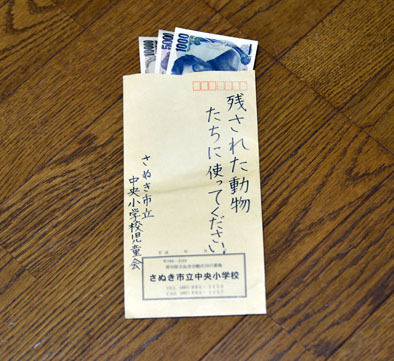 10000
5000
1000
残された動物
たちに使ってください。
さぬき市立
中央小学校児童会
さぬき市立中央小学校